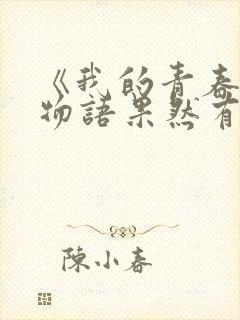 《我的青春
物語果然有
陳小春